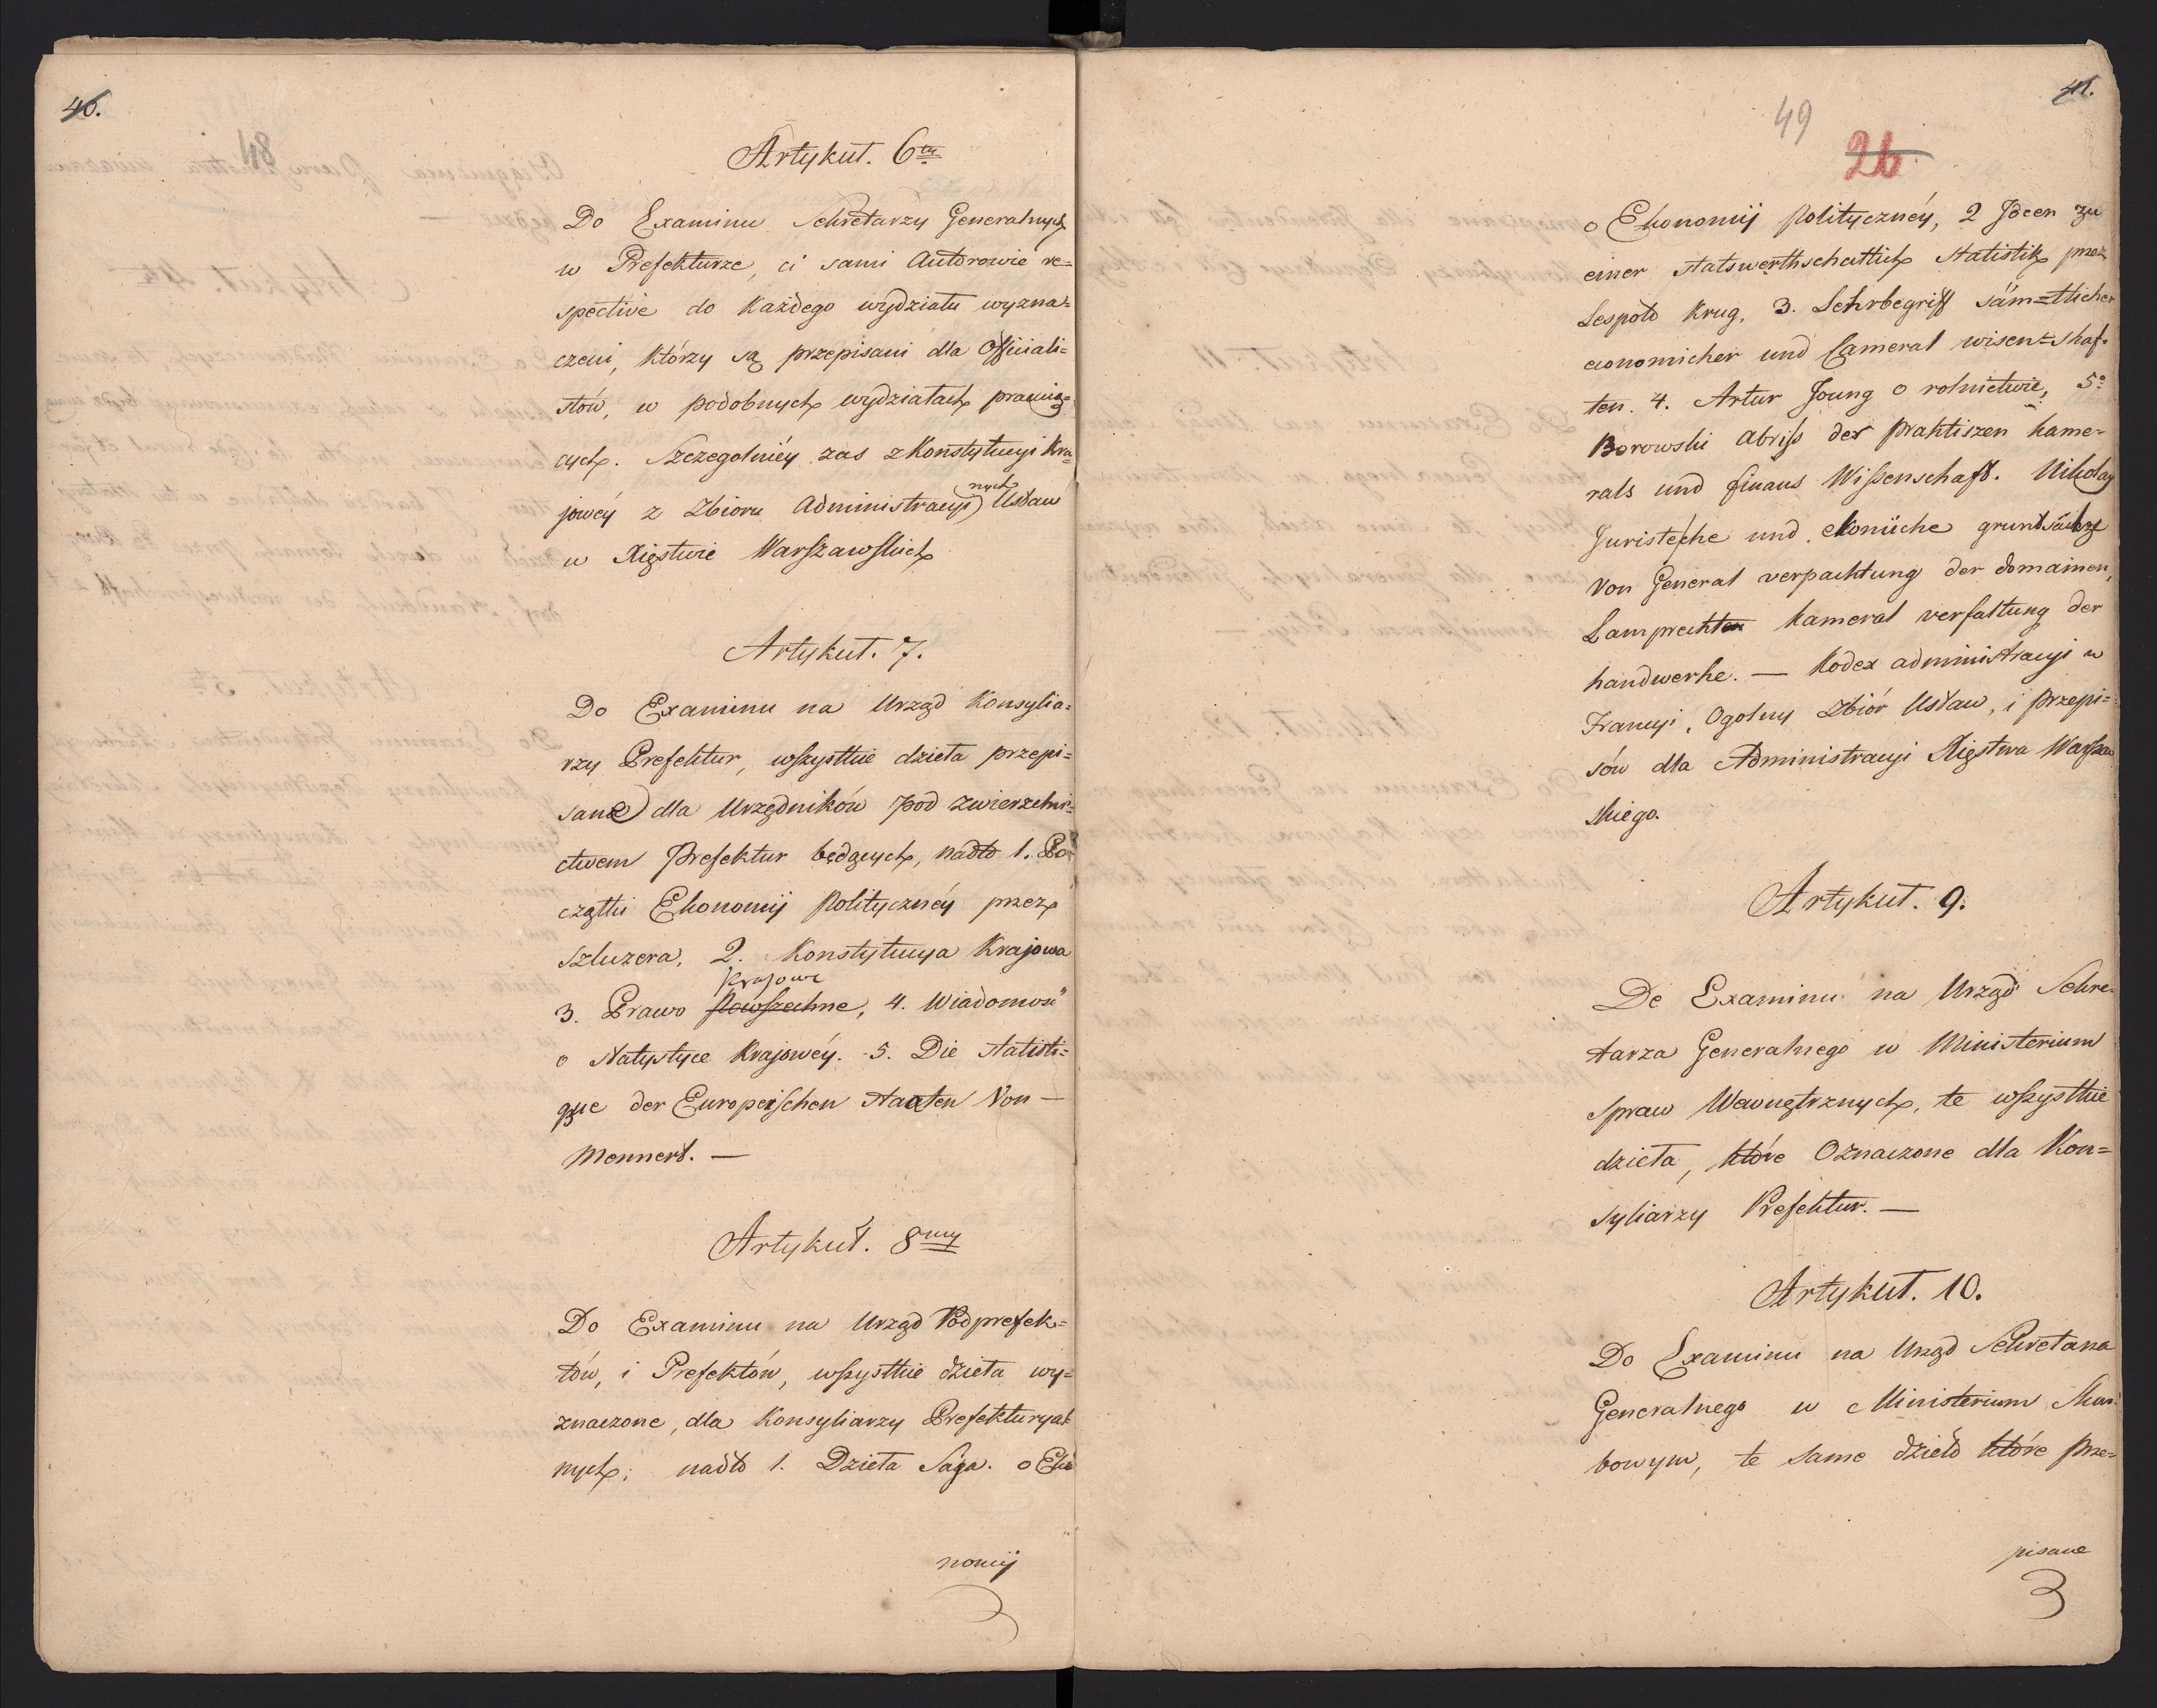 46.
48
Artykuł. 6ty
Do Examinu Sekretarzy Generalnych
w Prefekturze, ci sami Autorowie re=
spective do każdego wydziału wyzna=
czeni, którzy są przepisani dla Officiali=
stów, w podobnych wydziałach pracuią=
cych. Szczegolniéy zas z Konstytucyi Kra=
nych
jowéy z Zbioru Administracyi Ustaw
w Xięstwie Warszawskich
Artykuł. 7.
Do Examinu na Urząd Konsylia=
rzy Prefektur, wszystkie dzieła przepi=
sane dla Urzędników pod zwierzchni=
ctwem Prefektur będących, nadto 1. Po=
czątki Ekonomij Politycznéy przez
Szluzera, 2. Konstytucya Krajowa
Krajowe
3. Prawo Powszechne, 4. Wiadomość
o Statystyce Krajowéy. 5. Die Statisti=
que der Europeischen Staaten Von —
Mennert. —
Artykuł. 8my
Do Examinu na Urząd Podprefek=
tów, i Prefektów, wszystkie dzieła wy=
znaczone, dla Konsyliarzy Prefekturyal
nych; nadto 1. Dzieła Saya. o Eko
nomij
41.
49
26
o Ekonomij Politycznéy, 2 Ideen zu
einer Statswerthschattlich Statistik przez
Lespold Krug. 3. Lehrbegriff säm=tlicher
economicher und Cameral wisen=shaf=
ten. 4. Artur Joung o rolnictwie, 5o
Borowski abriss der praktiszen kame=
rals und finans Wissenschaft. Nikolay
Juristeche und ekoniche grundsäcze
Von General verpachtung der domainen,
Lamprechten kameral verfaltung der
handwerke. — Kodex administracyi w
Francyi, Ogolny Zbiór Ustaw, i przepi=
sów dla Administracyi Xięstwa Warszaw
skiego.
Artykuł. 9.
De Examinu na Urząd Sekre=
tarza Generalnego w Ministerium
Spraw Wewnętrznych, te wszystkie
dzieła, które Oznaczone dla Kon=
syliarzy Prefektur. —
Artykuł. 10.
Do Examinu na Urząd Sekretarza
Generalnego w Ministerium Skar=
bowym, te same dzieło które prze=
pisane